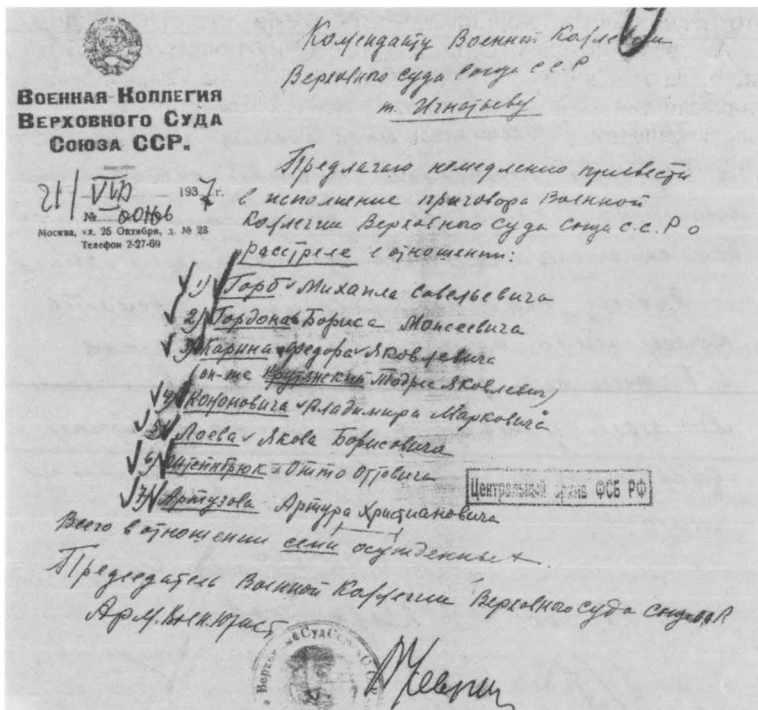 Военная Коллегия
Верховного Суда
Союза ССР.
21/VIII 1937 г.
№
Москва, ул. 25 Октября, д. № 23
Телефон 2-27-69
Коменданту Военной Коллегии
Верховного Суда Союза С.С.Р
т. Игнатьеву
Предлагаю немедленно привести
в исполнение приговора Военной
Коллегии Верховного Суда Союза С.С.Р о
расстреле в отношении:
1) Горб Михаила Савельевича
2) Гордона Бориса Моисеевича
3) Карина Федора Яковлевича
(он-же Крутянский Тодрес Яковлевич)
4) Кононовича Владимира Марковича
5) Лоева Якова Борисовича
6) Штейнбрюк Отто Оттовича
7) Артузова Артура Христиановича
Всего в отношении семи осужденных.
Председатель Военной Коллегии Верховного Суда Союза ССР
Арм.Воен.Юрист
Центральный архив ФСБ РФ